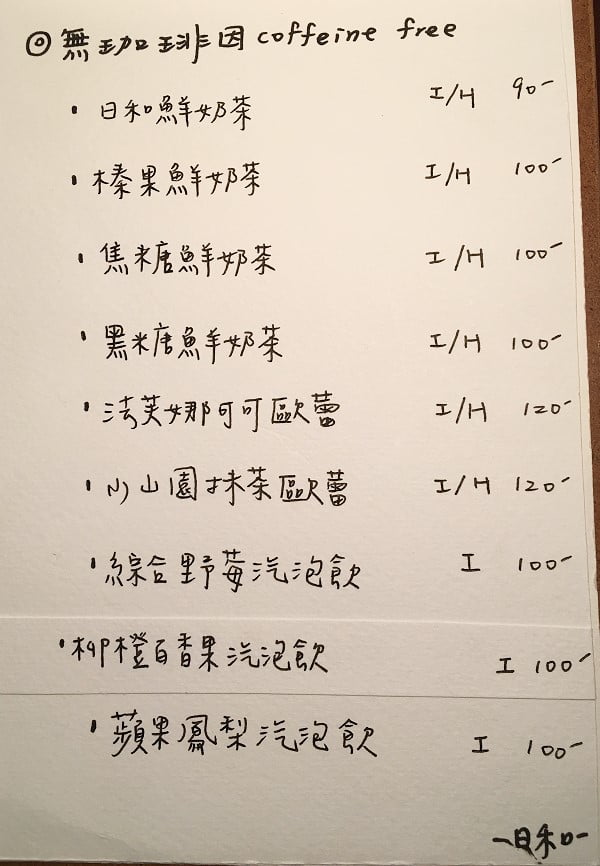 ◎ 無珈琲因 coffeine free
· 日和鮮奶茶 I/H 90-
· 榛果鮮奶茶 I/H 100-
· 焦糖鮮奶茶 I/H 100-
· 黑糖鮮奶茶 I/H 100-
· 法芙娜可可歐蕾 I/H 120-
· 小山園抹茶歐蕾 I/H 120-
· 綜合野莓汽泡飲 I 100-
· 柳橙百香果汽泡飲 I 100-
· 蘋果鳳梨汽泡飲 I 100-
-日和-